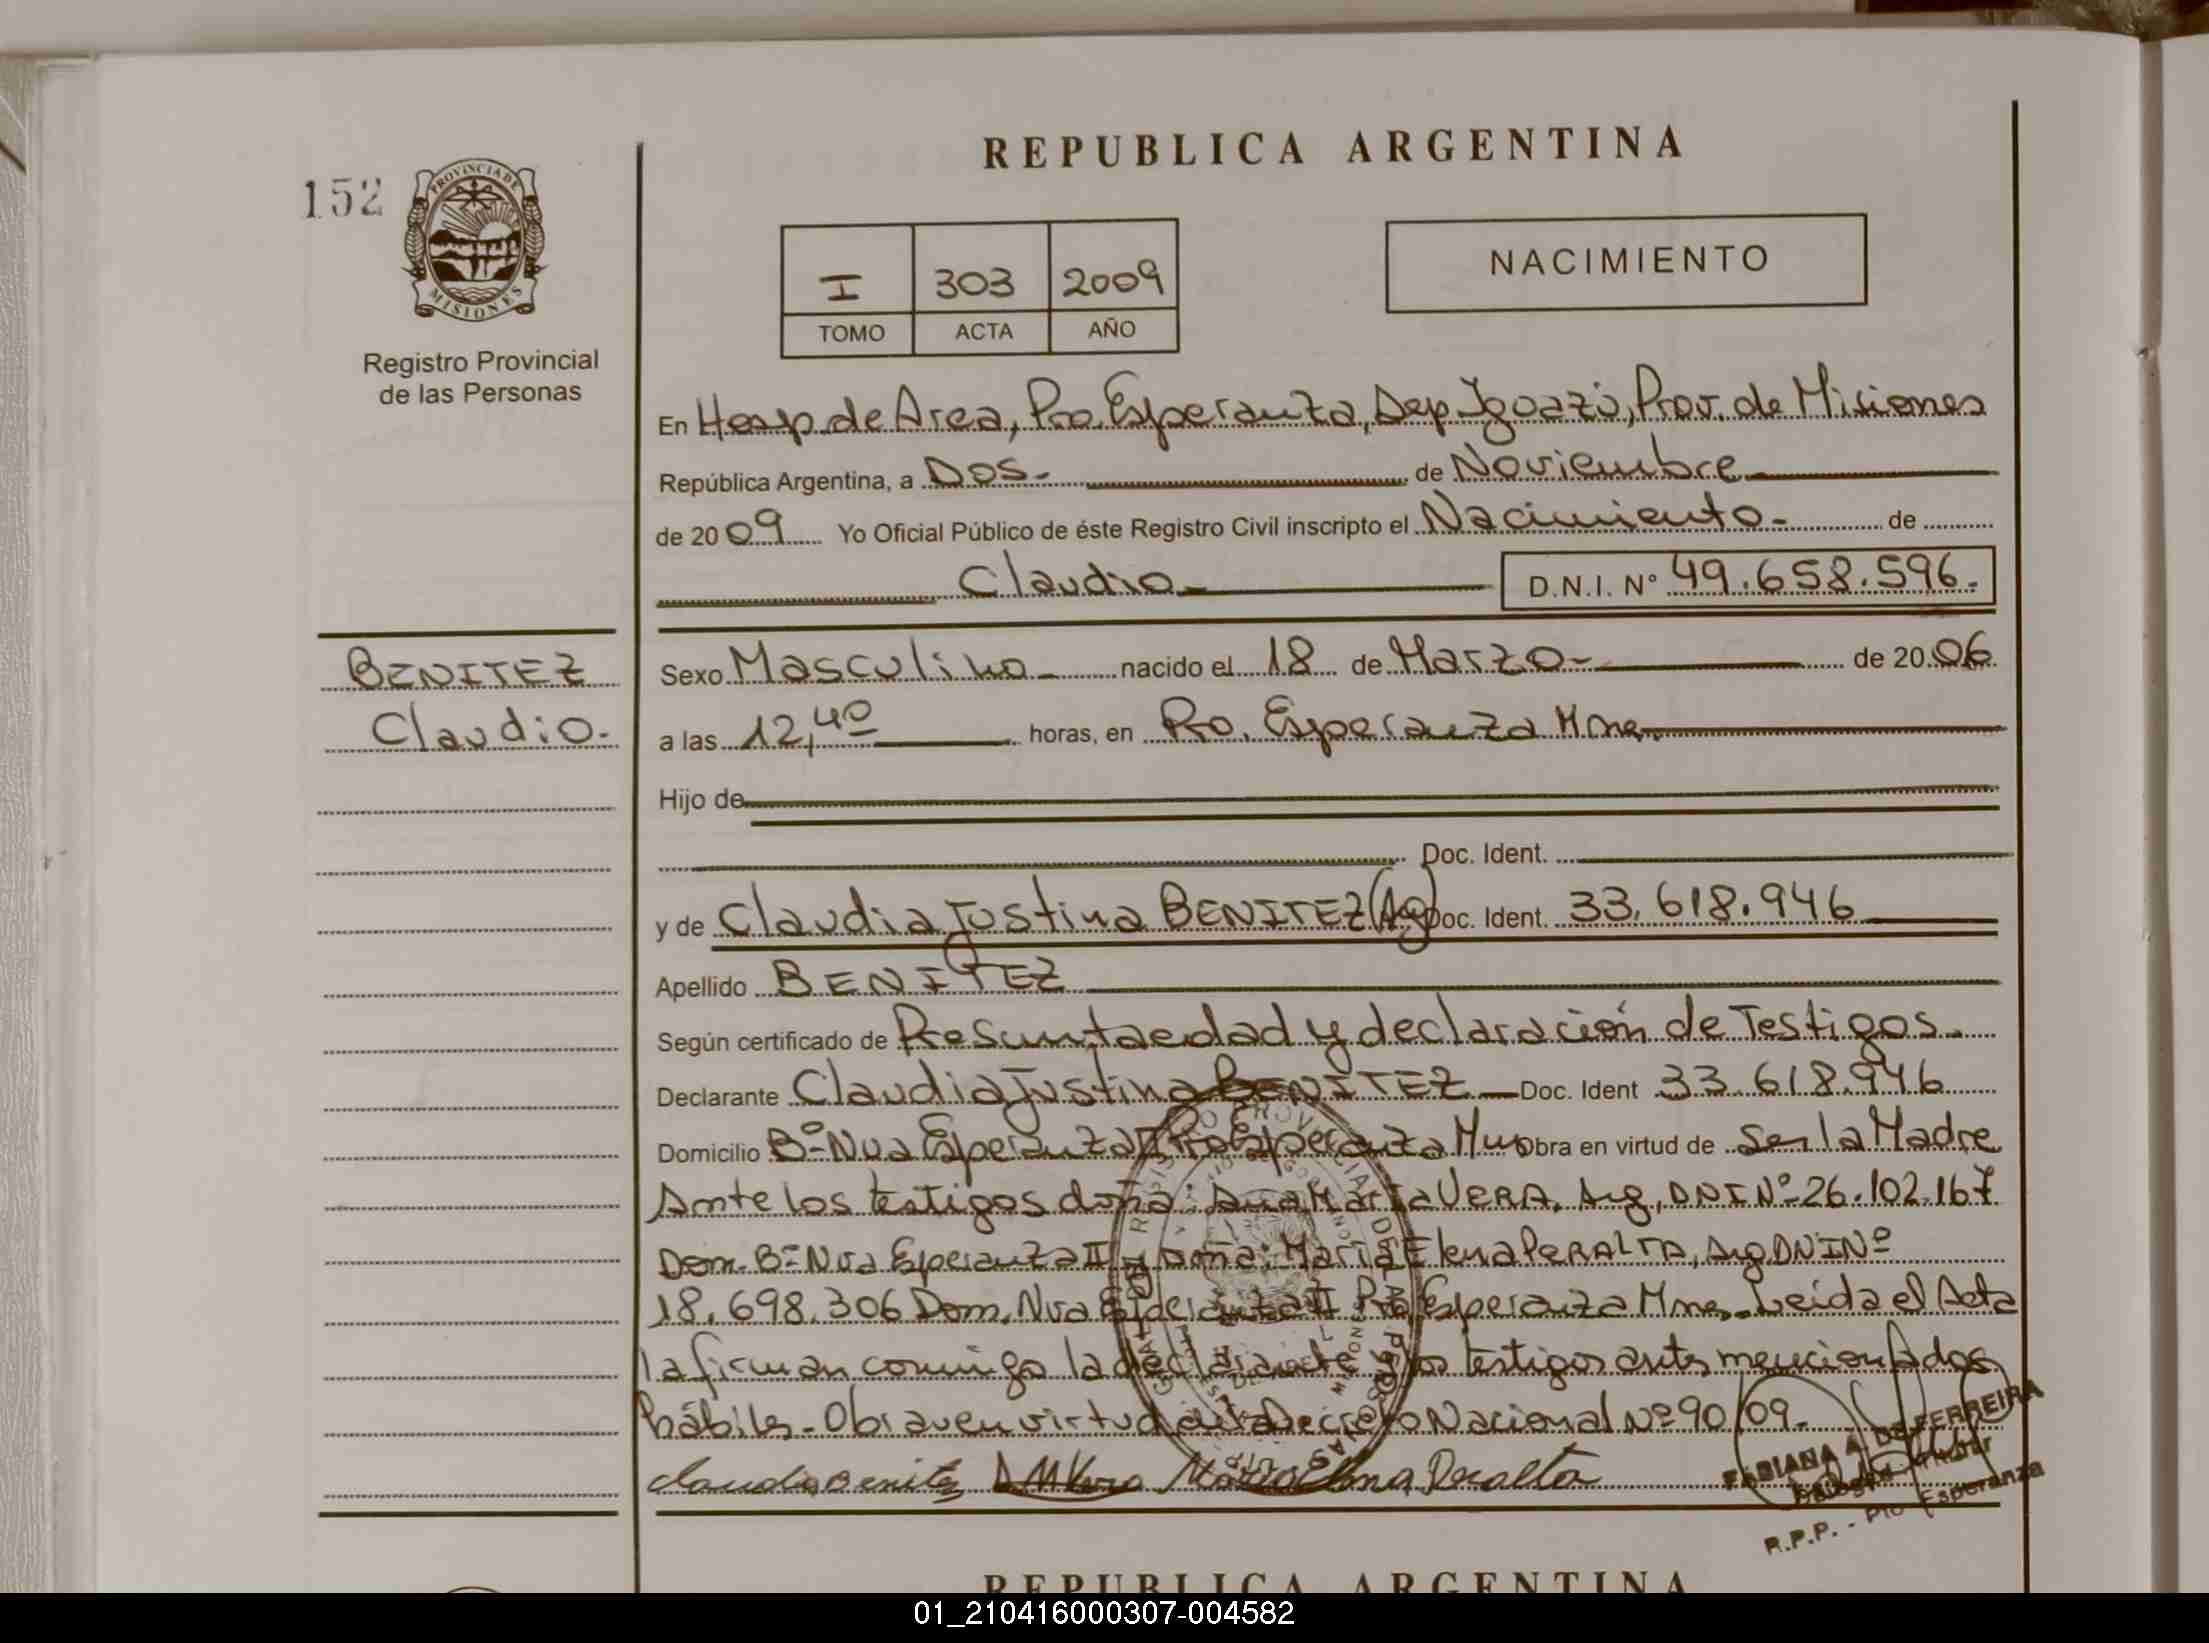 REPUBLICA ARGENTINA
152
PROVINCIA DE
MISIONES
Registro Provincial
de las Personas
I 303 2009
TOMO ACTA AÑO
NACIMIENTO
En Hosp. de Area, Pto. Esperanza, Dep Iguazú, Prov. de Misiones
República Argentina, a Dos.- de Noviembre
de 2009 Yo Oficial Público de éste Registro Civil inscripto el Nacimiento- de
Claudio- D.N.I. N° 49.658.596.
BENITEZ
Claudio.
Sexo Masculino- nacido el 18 de Marzo- de 2006
a las 12,40 horas, en Pto. Esperanza Mnes.
Hijo de
Doc. Ident.
y de Claudia Justina BENITEZ (Arg) Doc. Ident. 33.618.946
Apellido BENITEZ
Según certificado de Presunta edad y declaración de Testigos.-
Declarante Claudia Justina BENITEZ — Doc. Ident 33.618.946
Domicilio B° Nva Esperanza II Pto Esperanza Obra en virtud de Ser la Madre
Ante los testigos doña: Ana María VERA, Arg, DNI N° 26.102.167
Dom. B° Nva Esperanza II y Doña: María Elena PERALTA, Arg DNI N°
18.698.306 Dom. Nva Esperanza II Pto Esperanza Mnes.- Leida el Acta
la firman conmigo la declarante y los testigos antes mencionados
hábiles.- Obra en virtud del Decreto Nacional N° 90/09.-
Claudia Benitez AMVera Maria Elena Peralta
FABIANA A. DE FERREIRA
R.P.P. - Pto Esperanza
REPUBLICA ARGENTINA
01_210416000307-004582